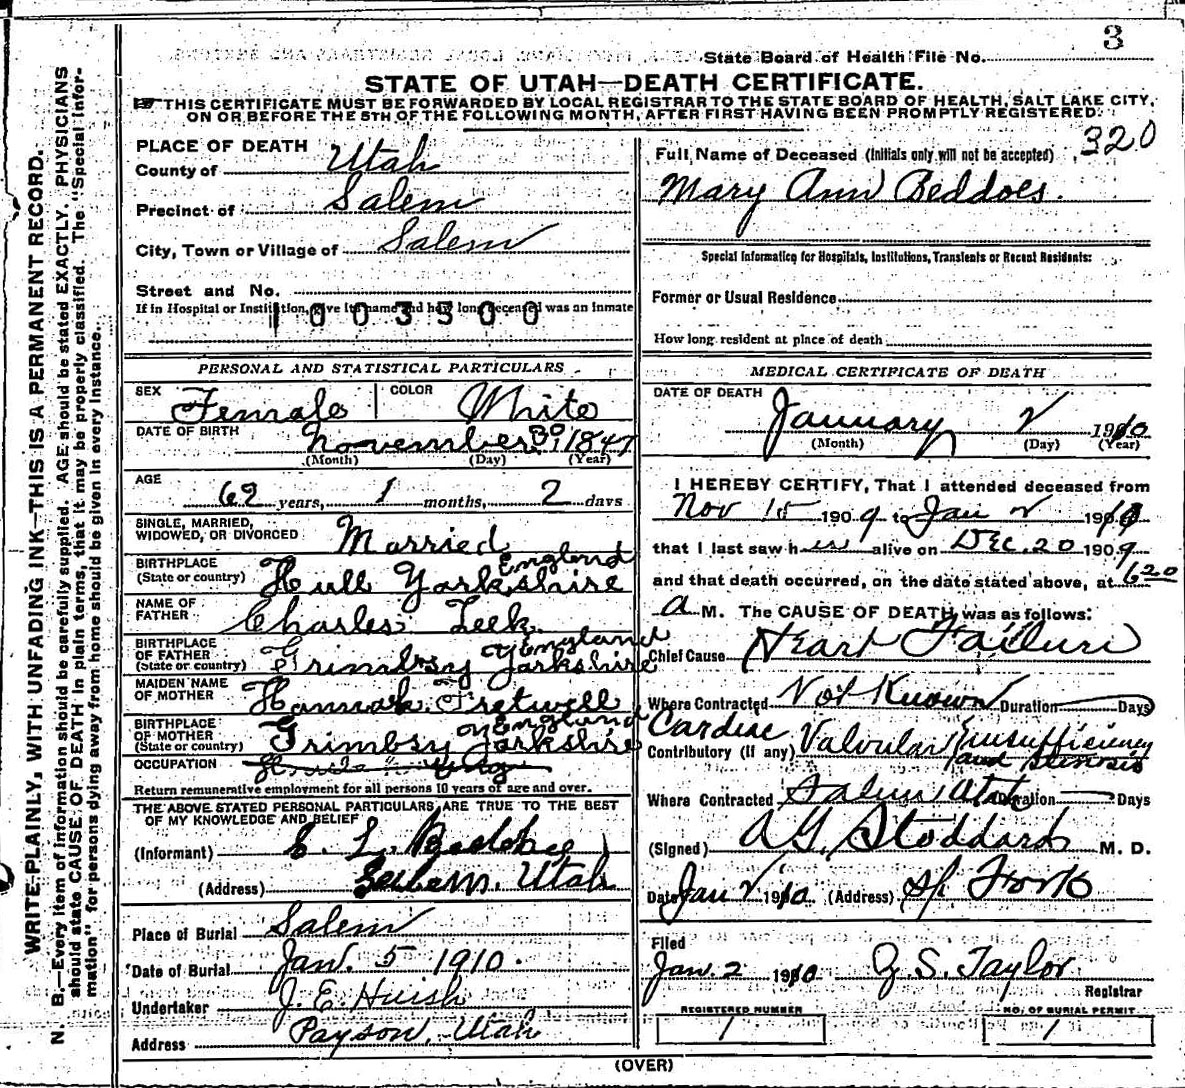 3
State Board of Health File No.
STATE OF UTAH—DEATH CERTIFICATE.
THIS CERTIFICATE MUST BE FORWARDED BY LOCAL REGISTRAR TO THE STATE BOARD OF HEALTH, SALT LAKE CITY,
ON OR BEFORE THE 5TH OF THE FOLLOWING MONTH, AFTER FIRST HAVING BEEN PROMPTLY REGISTERED.
WRITE PLAINLY, WITH UNFADING INK—THIS IS A PERMANENT RECORD.
N. B.—Every item of information should be carefully supplied. AGE should be stated EXACTLY. PHYSICIANS
should state CAUSE OF DEATH in plain terms, that it may be properly classified. The "Special Infor-
mation" for persons dying away from home should be given in every instance.
PLACE OF DEATH
County of Utah
Precinct of Salem
City, Town or Village of Salem
Street and No.
If in Hospital or Institution, give its name and how long deceased was an inmate
1003500
PERSONAL AND STATISTICAL PARTICULARS
SEX Female COLOR White
DATE OF BIRTH November 30, 1847
(Month) (Day) (Year)
AGE 62 years, 1 months, 2 days
SINGLE, MARRIED,
WIDOWED, OR DIVORCED Married
BIRTHPLACE England
(State or country) Hull Yorkshire
NAME OF
FATHER Charles Leek
BIRTHPLACE
OF FATHER England
(State or country) Grimbsy Yorkshire
MAIDEN NAME
OF MOTHER Hannah Fretwell
BIRTHPLACE
OF MOTHER England
(State or country) Grimbsy Yorkshire
OCCUPATION
Return remunerative employment for all persons 10 years of age and over.
THE ABOVE STATED PERSONAL PARTICULARS ARE TRUE TO THE BEST
OF MY KNOWLEDGE AND BELIEF
(Informant)
(Address) Salem, Utah
Place of Burial Salem
Date of Burial Jan. 5 1910.
Undertaker J. E. Huish
Address Payson, Utah
320
Full Name of Deceased (Initials only will not be accepted)
Mary Ann Beddoes.
Special Information for Hospitals, Institutions, Transients or Recent Residents:
Former or Usual Residence
How long resident at place of death
MEDICAL CERTIFICATE OF DEATH
DATE OF DEATH
January 2 1910
(Month) (Day) (Year)
I HEREBY CERTIFY, That I attended deceased from
Nov 15 1909 to Jan 2 1910
that I last saw her alive on Dec. 20 1909
and that death occurred, on the date stated above, at 6 20
a M. The CAUSE OF DEATH was as follows:
Chief Cause Heart Failure
Where Contracted Not Known Duration Days
Cardiac
Contributory (if any) Valvular Insufficiency
and Stenosis
Where Contracted Salem Utah Duration Days
(Signed) A G. Stoddard M. D.
Date Jan 2 1910 (Address) Sp. Fork
Filed
Jan. 2 1910 S. Taylor
Registrar
REGISTERED NUMBER
1
NO. OF BURIAL PERMIT
1
(OVER)